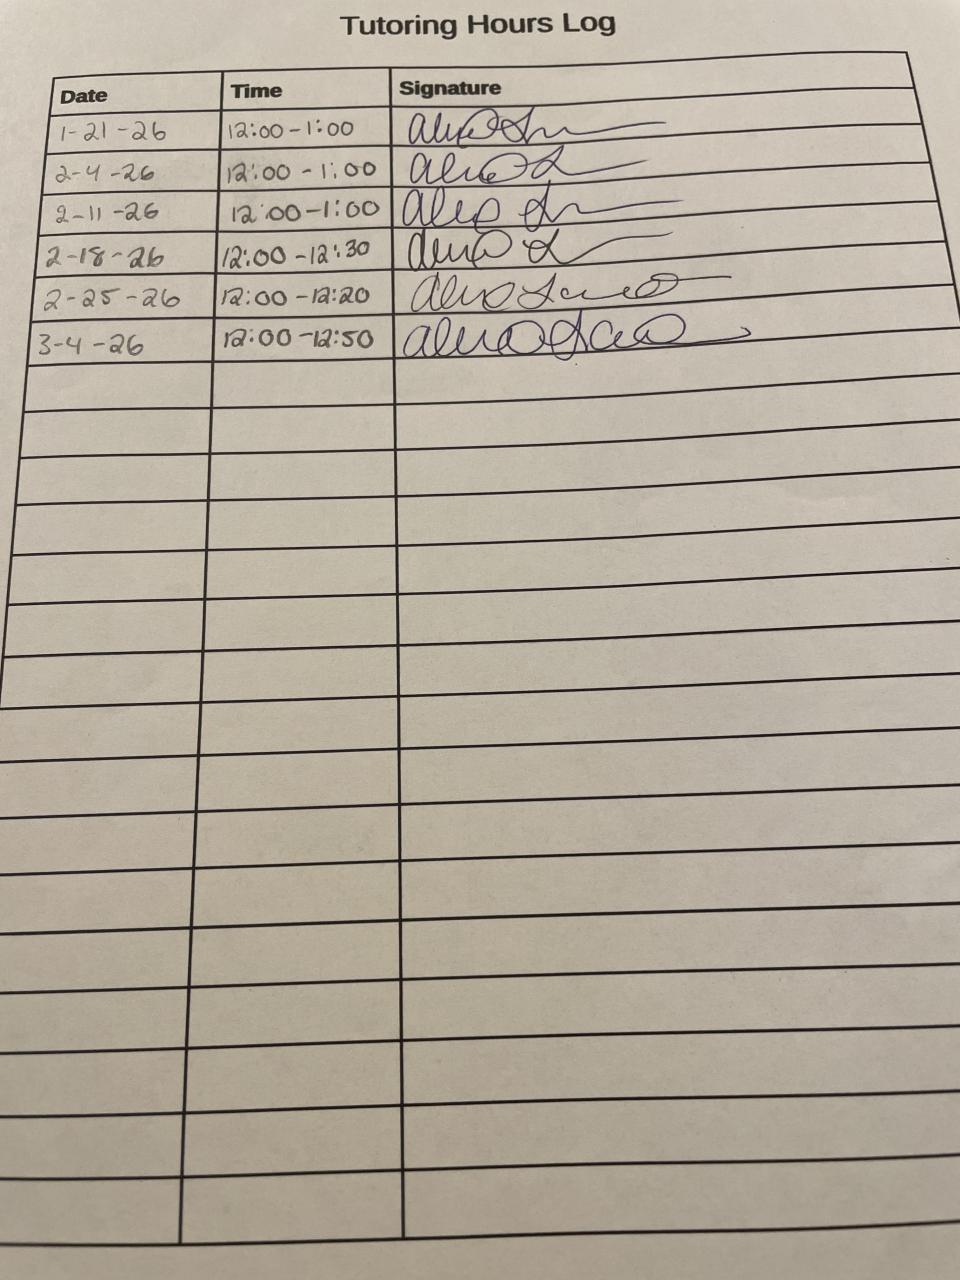 Tutoring Hours Log
Date Time Signature
1-21-26 12:00-1:00
2-4-26 12:00-1:00
2-11-26 12:00-1:00
2-18-26 12:00-12:30
2-25-26 12:00-12:20
3-4-26 12:00-12:50